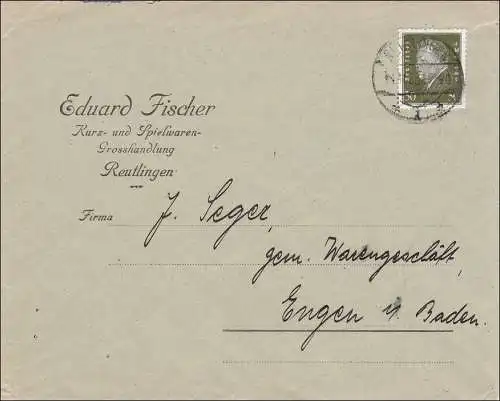 Eduard Fischer
Kurz- und Spielwaren-
Grosshandlung
Reutlingen
Firma J. Seger,
gem. Warengeschäft,
Engen i. Baden.